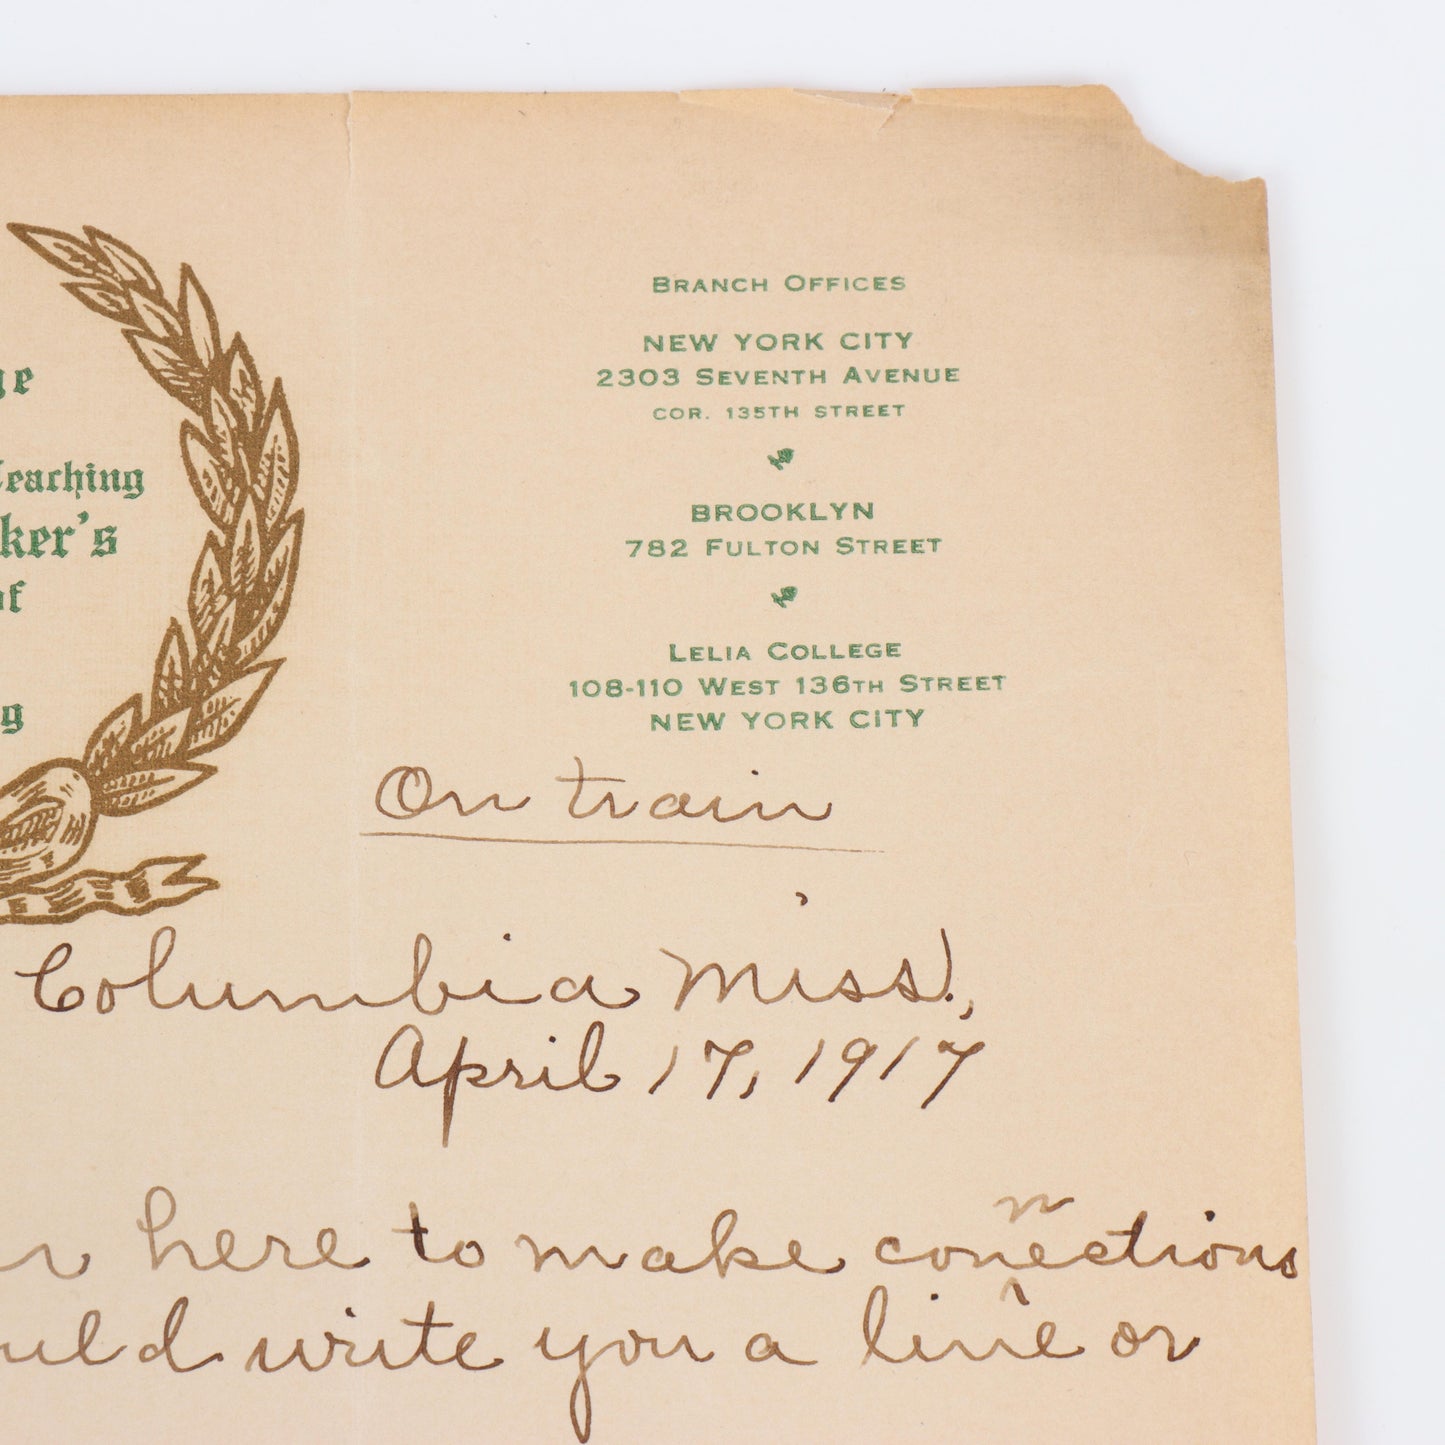 Branch Offices
NEW YORK CITY
2303 Seventh Avenue
COR. 135TH STREET
BROOKLYN
782 Fulton Street
Lelia College
108-110 West 136th Street
NEW YORK CITY
ge
Teaching
ker's
of
g
On train
Columbia Miss.,
April 17, 1917
here to make connections
ould write you a line or